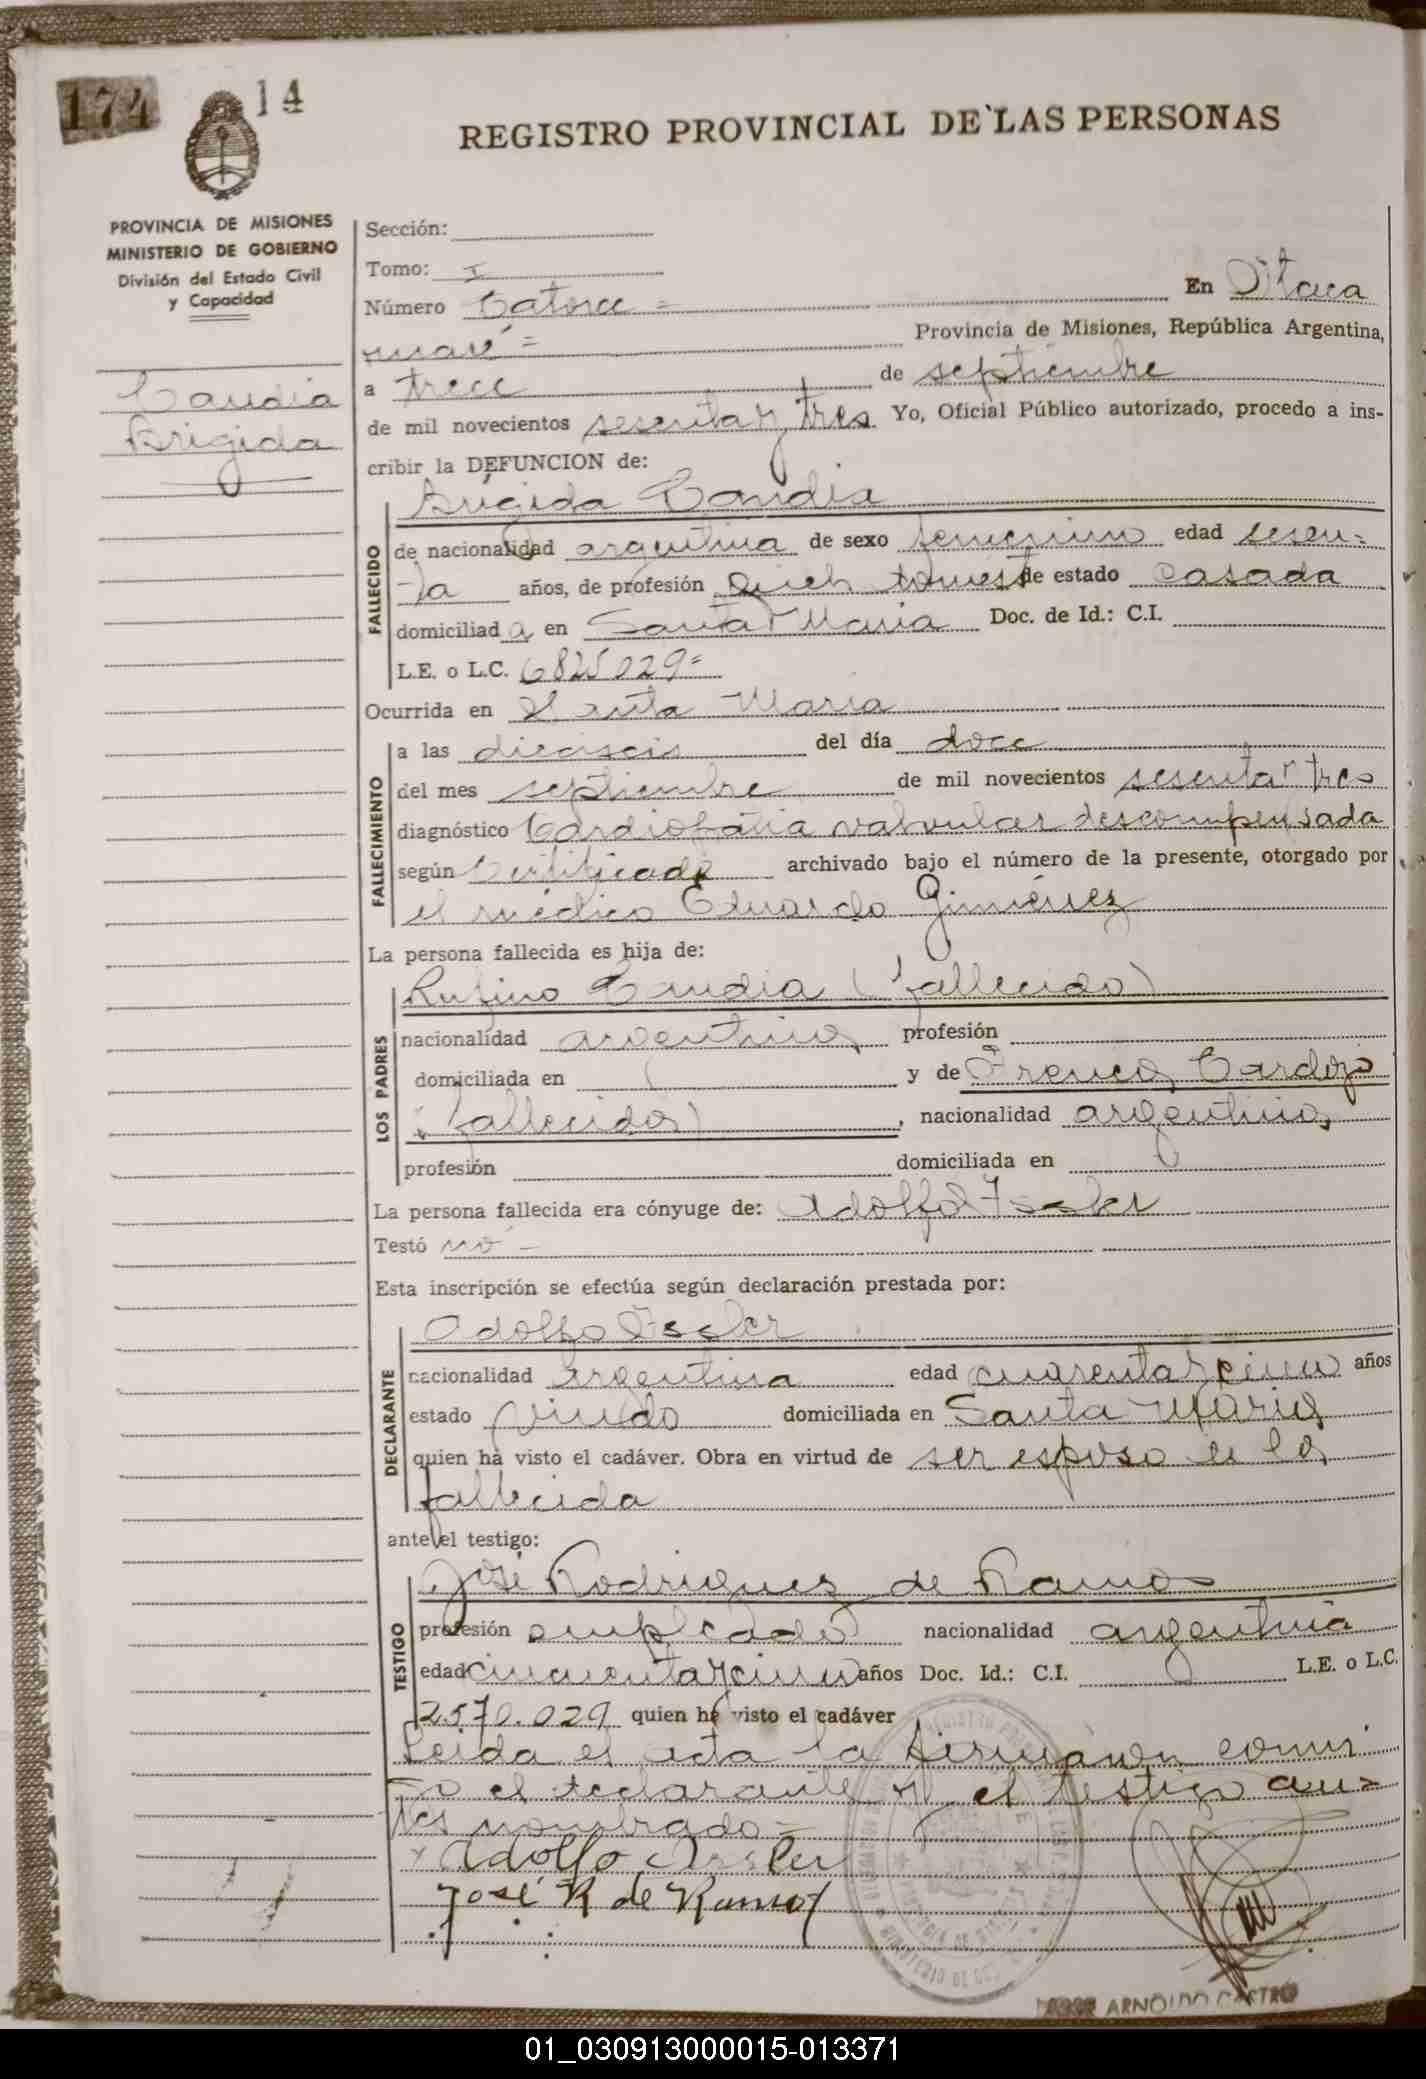 174 14
REGISTRO PROVINCIAL DE LAS PERSONAS
PROVINCIA DE MISIONES
MINISTERIO DE GOBIERNO
División del Estado Civil
y Capacidad
Candia
Brigida
Sección:
Tomo: I
Número Catorce = En Itaca
ruaré = Provincia de Misiones, República Argentina,
a trece de septiembre
de mil novecientos sesenta y tres Yo, Oficial Público autorizado, procedo a ins-
cribir la DEFUNCION de:
Brigida Candia
FALLECIDO
de nacionalidad argentina de sexo femenino edad sesen=
ta años, de profesión de estado casada
domiciliada en Santa Maria Doc. de Id.: C.I.
L.E. o L.C. 6825029=
Ocurrida en Santa Maria
FALLECIMIENTO
a las dieciseis del día doce
del mes septiembre de mil novecientos sesenta y tres
diagnóstico Cardiopatia valvular descompensada
según Certificado archivado bajo el número de la presente, otorgado por
el médico Eduardo Gimenez
La persona fallecida es hija de:
LOS PADRES
Rufino Candia (fallecido)
nacionalidad argentina profesión
domiciliada en y de Cardozo
(fallecida), nacionalidad argentina
profesión domiciliada en
La persona fallecida era cónyuge de: Adolfo
Testó no -
Esta inscripción se efectúa según declaración prestada por:
DECLARANTE
Adolfo
nacionalidad argentina edad cuarenta y cinco años
estado viudo domiciliada en Santa Maria
quien ha visto el cadáver. Obra en virtud de ser esposo de la
fallecida
ante el testigo:
TESTIGO
José Rodriguez de Ramos
profesión empleado nacionalidad argentina
edad cincuenta y cinco años Doc. Id.: C.I. L.E. o L.C.
2.570.029 quien ha visto el cadáver
Leida el acta la firman conmi
go el declarante y el testigo an=
tes nombrado=
x Adolfo
José R de Ramos
ARNOLDO CASTRO
01_030913000015-013371